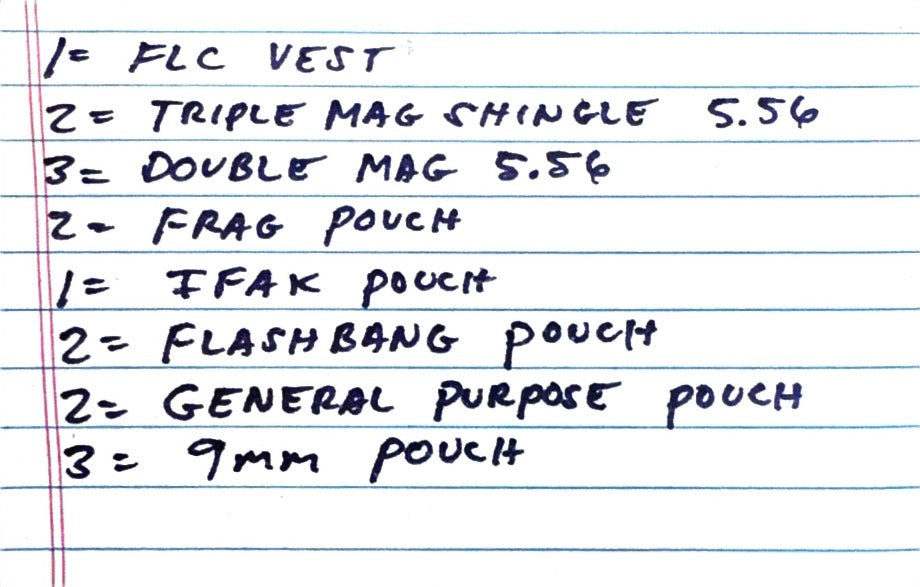 1= FLC VEST
2= TRIPLE MAG SHINGLE 5.56
3= DOUBLE MAG 5.56
2= FRAG POUCH
1= IFAK POUCH
2= FLASHBANG POUCH
2= GENERAL PURPOSE POUCH
3= 9mm POUCH